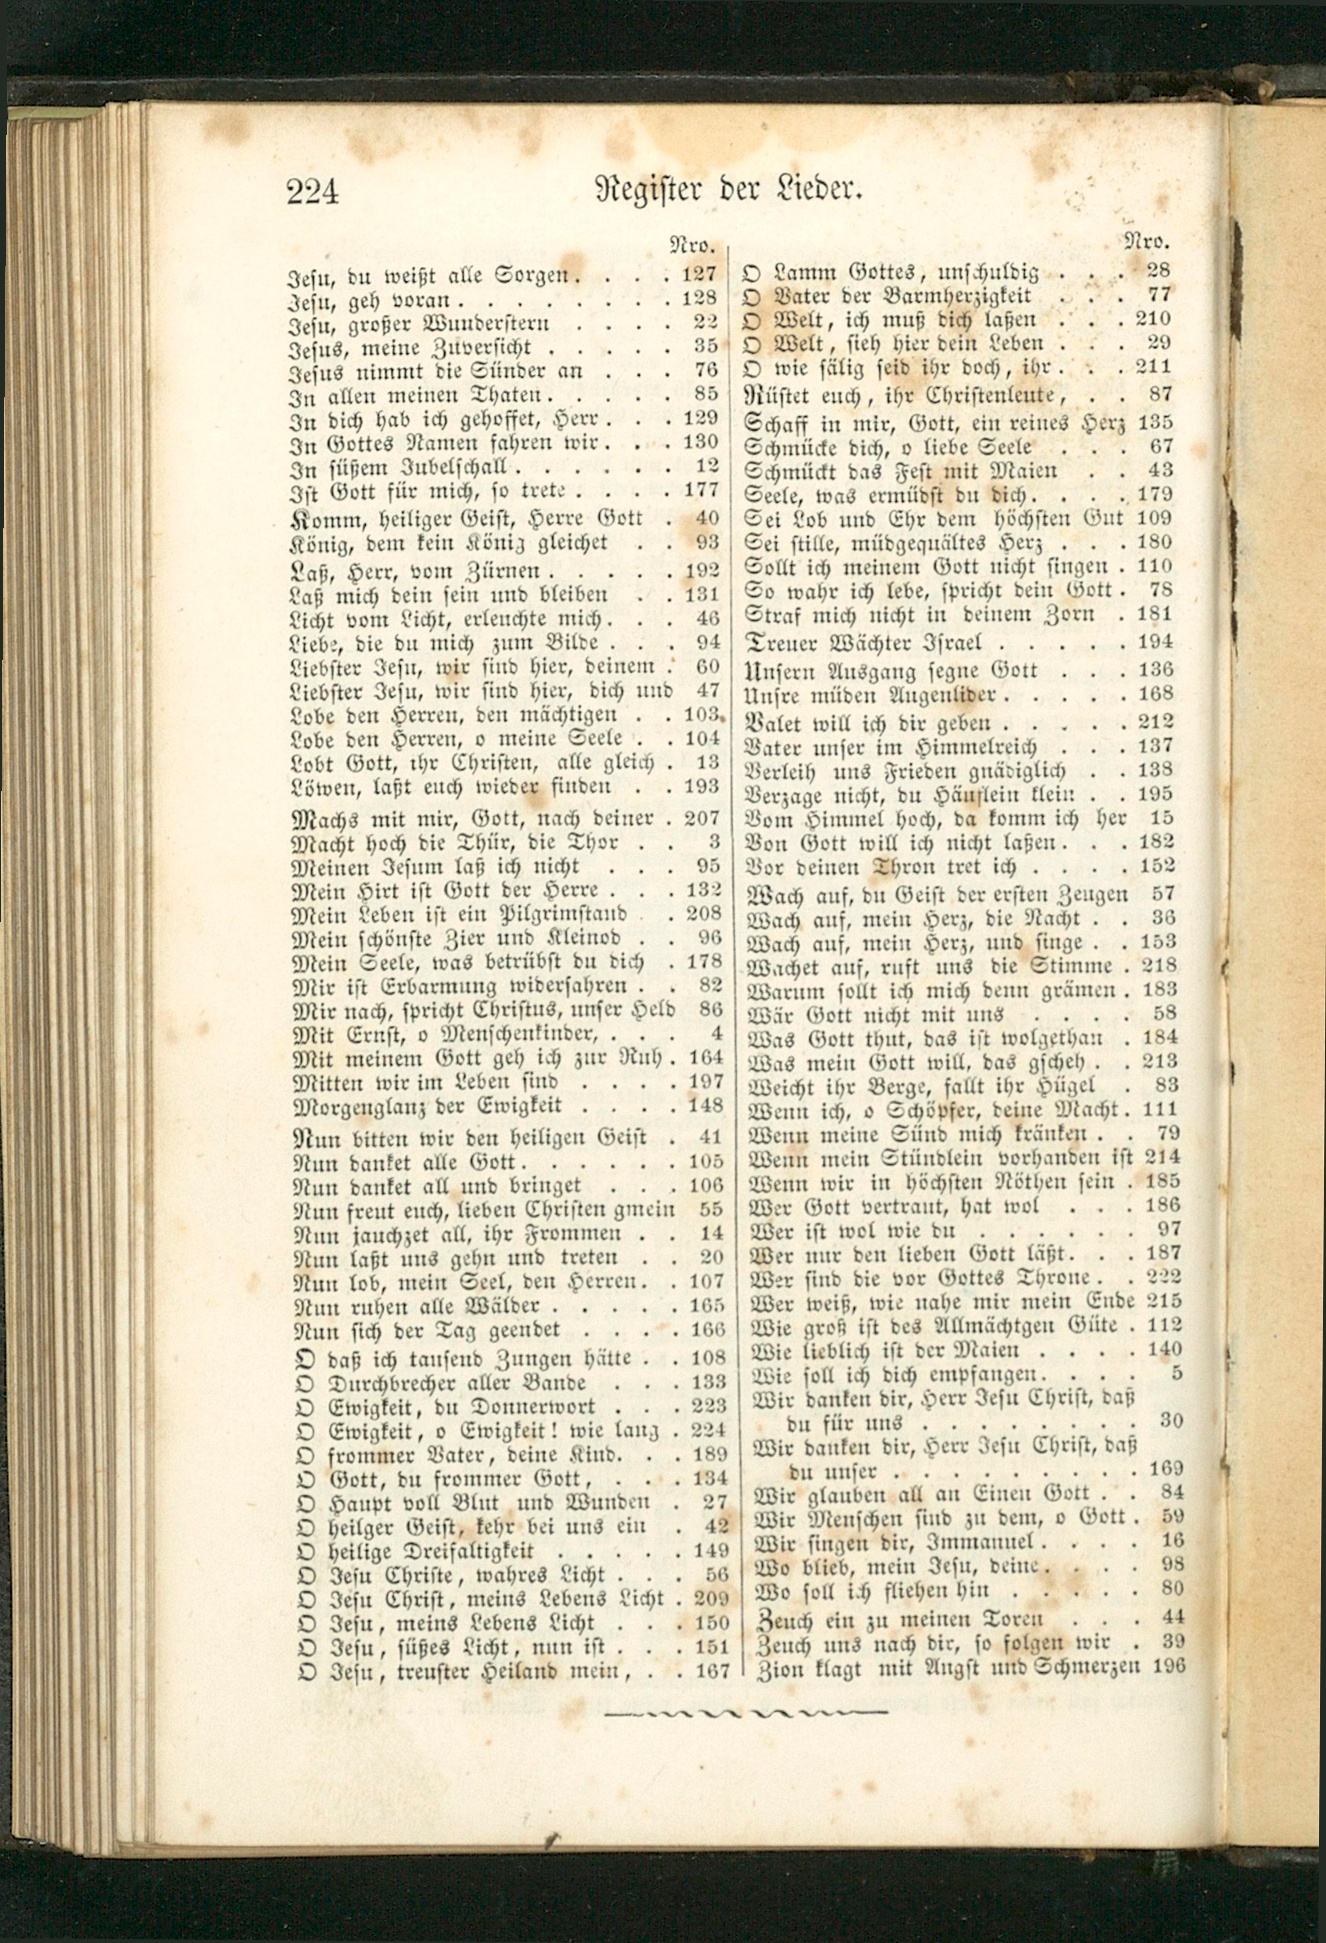 224
Register der Lieder.
Nro.
Jesu, du weißt alle Sorgen. . . . 127
Jesu, geh voran. . . . . . . . . 128
Jesu, großer Wunderstern . . . . 22
Jesus, meine Zuversicht . . . . . 35
Jesus nimmt die Sünder an . . . 76
In allen meinen Thaten. . . . . . 85
In dich hab ich gehoffet, Herr . . . 129
In Gottes Namen fahren wir. . . 130
In süßem Jubelschall. . . . . . . 12
Ist Gott für mich, so trete . . . . 177
Komm, heiliger Geist, Herre Gott . 40
König, dem kein König gleichet . . 93
Laß, Herr, vom Zürnen . . . . . 192
Laß mich dein sein und bleiben . . 131
Licht vom Licht, erleuchte mich. . . 46
Liebe, die du mich zum Bilde . . . 94
Liebster Jesu, wir sind hier, deinem . 60
Liebster Jesu, wir sind hier, dich und 47
Lobe den Herren, den mächtigen . . 103
Lobe den Herren, o meine Seele . . 104
Lobt Gott, ihr Christen, alle gleich . 13
Löwen, laßt euch wieder finden . . 193
Machs mit mir, Gott, nach deiner . 207
Macht hoch die Thür, die Thor . . 3
Meinen Jesum laß ich nicht . . . 95
Mein Hirt ist Gott der Herre . . . 132
Mein Leben ist ein Pilgrimstand . . 208
Mein schönste Zier und Kleinod . . 96
Mein Seele, was betrübst du dich . 178
Mir ist Erbarmung widerfahren . . 82
Mir nach, spricht Christus, unser Held 86
Mit Ernst, o Menschenkinder, . . . 4
Mit meinem Gott geh ich zur Ruh . 164
Mitten wir im Leben sind . . . . 197
Morgenglanz der Ewigkeit . . . . 148
Nun bitten wir den heiligen Geist . 41
Nun danket alle Gott. . . . . . . 105
Nun danket all und bringet . . . 106
Nun freut euch, lieben Christen gmein 55
Nun jauchzet all, ihr Frommen . . 14
Nun laßt uns gehn und treten . . 20
Nun lob, mein Seel, den Herren. . 107
Nun ruhen alle Wälder . . . . . 165
Nun sich der Tag geendet . . . . 166
O daß ich tausend Zungen hätte . . 108
O Durchbrecher aller Bande . . . 133
O Ewigkeit, du Donnerwort . . . 223
O Ewigkeit, o Ewigkeit! wie lang . 224
O frommer Vater, deine Kind. . . 189
O Gott, du frommer Gott, . . . 134
O Haupt voll Blut und Wunden . 27
O heilger Geist, kehr bei uns ein . 42
O heilige Dreifaltigkeit . . . . . 149
O Jesu Christe, wahres Licht . . . 56
O Jesu Christ, meins Lebens Licht . 209
O Jesu, meins Lebens Licht . . . 150
O Jesu, süßes Licht, nun ist . . . 151
O Jesu, treuster Heiland mein, . . 167
Nro.
O Lamm Gottes, unschuldig . . . 28
O Vater der Barmherzigkeit . . . 77
O Welt, ich muß dich laßen . . . 210
O Welt, sieh hier dein Leben . . . 29
O wie sälig seid ihr doch, ihr . . . 211
Rüstet euch, ihr Christenleute, . . 87
Schaff in mir, Gott, ein reines Herz 135
Schmücke dich, o liebe Seele . . 67
Schmückt das Fest mit Maien . . 43
Seele, was ermüdst du dich. . . . 179
Sei Lob und Ehr dem höchsten Gut 109
Sei stille, müdgequältes Herz . . . 180
Sollt ich meinem Gott nicht singen . 110
So wahr ich lebe, spricht dein Gott . 78
Straf mich nicht in deinem Zorn . 181
Treuer Wächter Israel . . . . . 194
Unsern Ausgang segne Gott . . . 136
Unsre müden Augenlider . . . . . 168
Valet will ich dir geben . . . . . 212
Vater unser im Himmelreich . . . 137
Verleih uns Frieden gnädiglich . . 138
Verzage nicht, du Häuflein klein . . 195
Vom Himmel hoch, da komm ich her 15
Von Gott will ich nicht laßen. . . 182
Vor deinen Thron tret ich . . . . 152
Wach auf, du Geist der ersten Zeugen 57
Wach auf, mein Herz, die Nacht . . 36
Wach auf, mein Herz, und singe . . 153
Wachet auf, ruft uns die Stimme . 218
Warum sollt ich mich denn grämen . 183
Wär Gott nicht mit uns . . . . 58
Was Gott thut, das ist wolgethan . 184
Was mein Gott will, das gscheh . . 213
Weicht ihr Berge, fallt ihr Hügel . 83
Wenn ich, o Schöpfer, deine Macht. 111
Wenn meine Sünd mich kränken . . 79
Wenn mein Stündlein vorhanden ist 214
Wenn wir in höchsten Nöthen sein . 185
Wer Gott vertraut, hat wol . . . 186
Wer ist wol wie du . . . . . . 97
Wer nur den lieben Gott läßt. . . 187
Wer sind die vor Gottes Throne. . 222
Wer weiß, wie nahe mir mein Ende 215
Wie groß ist des Allmächtgen Güte . 112
Wie lieblich ist der Maien . . . . 140
Wie soll ich dich empfangen. . . . 5
Wir danken dir, Herr Jesu Christ, daß
du für uns . . . . . . . . . 30
Wir danken dir, Herr Jesu Christ, daß
du unser . . . . . . . . . . 169
Wir glauben all an Einen Gott . . 84
Wir Menschen sind zu dem, o Gott . 59
Wir singen dir, Immanuel. . . . . 16
Wo blieb, mein Jesu, deine. . . . 98
Wo soll ich fliehen hin . . . . . 80
Zeuch ein zu meinen Toren . . . 44
Zeuch uns nach dir, so folgen wir . 39
Zion klagt mit Angst und Schmerzen 196